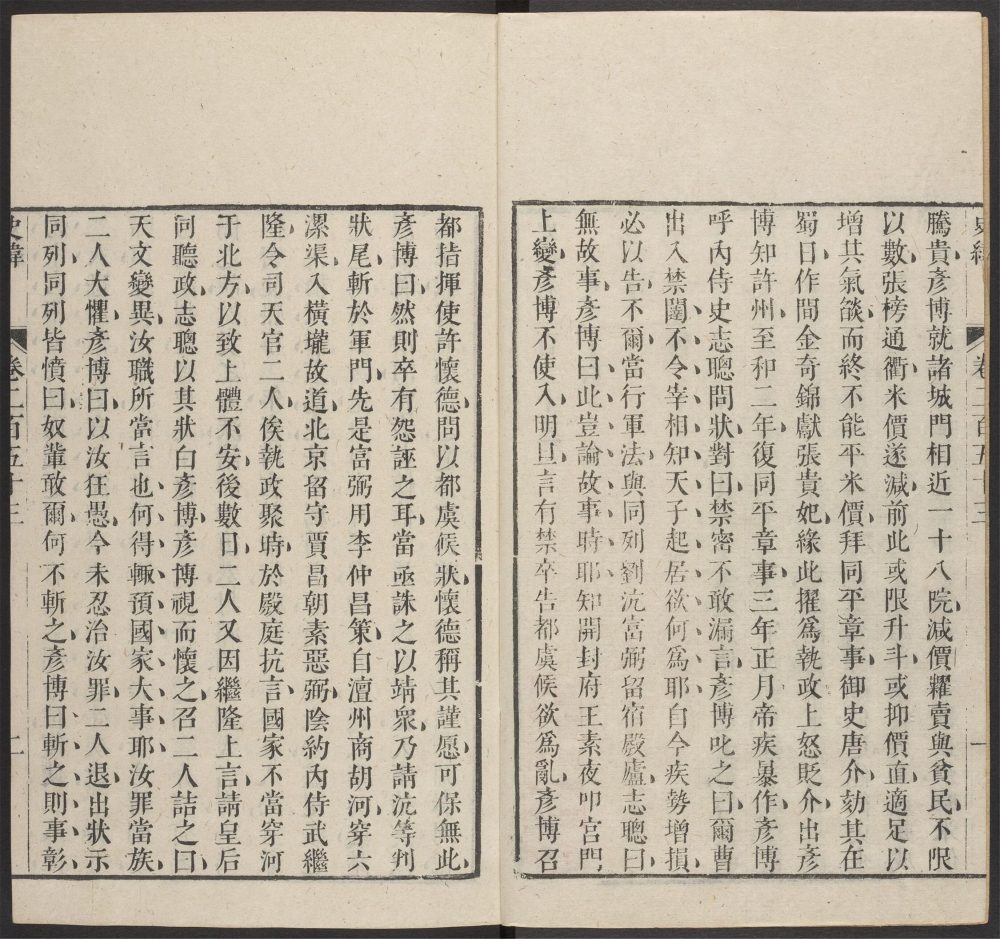 史緯 卷二百五十三 一
騰貴彥博就諸城門相近一十八院減價糶賣與貧民不限
以數張榜通衢米價遂減前此或限升斗或抑價直適足以
增其氣燄而終不能平米價拜同平章事御史唐介劾其在
蜀日作間金奇錦獻張貴妃緣此擢爲執政上怒貶介出彥
博知許州至和二年復同平章事三年正月帝疾暴作彥博
呼內侍史志聰問狀對曰禁密不敢漏言彥博叱之曰爾曹
出入禁闥不令宰相知天子起居欲何爲耶自今疾勢增損
必以告不爾當行軍法與同列劉沆富弼留宿殿廬志聰曰
無故事彥博曰此豈論故事時耶知開封府王素夜叩宮門
上變彥博不使入明旦言有禁卒告都虞候欲爲亂彥博召
都指揮使許懷德問以都虞候狀懷德稱其謹愿可保無此
彥博曰然則卒有怨誣之耳當亟誅之以靖衆乃請沆等判
狀尾斬於軍門先是富弼用李仲昌策自澶州商胡河穿六
漯渠入橫壠故道北京留守賈昌朝素惡弼陰約內侍武繼
隆令司天官二人俟執政聚時於殿庭抗言國家不當穿河
于北方以致上體不安後數日二人又因繼隆上言請皇后
同聽政志聰以其狀白彥博彥博視而懷之召二人詰之曰
天文變異汝職所當言也何得輙預國家大事耶汝罪當族
二人大懼彥博曰以汝狂愚今未忍治汝罪二人退出狀示
同列同列皆憤曰奴輩敢爾何不斬之彥博曰斬之則事彰
史緯 卷二百五十三 二